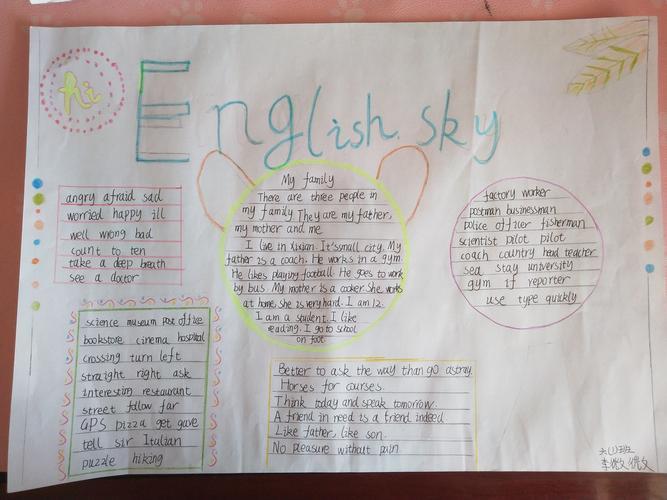 hi
English sky
angry afraid sad
worried happy ill
well wrong bad
count to ten
take a deep breath
see a doctor
My family
There are three people in
my family They are my father,
my mother and me.
I live in Xixian. It'ssmall city. My
father is a coach. He works in a gym.
He likes playing football. He goes to work
by bus. My mother is a cooker. She works
at home. she is very hard. I am 12.
I am a student. I like
reading. I go to school
on foot.
factory worker
postman businessman
police officer fisherman
scientist pilot pilot
coach country head teacher
sea stay university
gym if reporter
use type quickly
science museum post office
bookstore cinema hospital
crossing turn left
straight right ask
interesting restaurant
street follow far
GPS pizza get gave
tell sir Italian
puzzle hiking
Better to ask the way than go astray.
Horses for courses.
Think today and speak tomorrow.
A friend in need is a friend indeed
Like father, like son.
No pleasure without pain
六(1)班
李微微